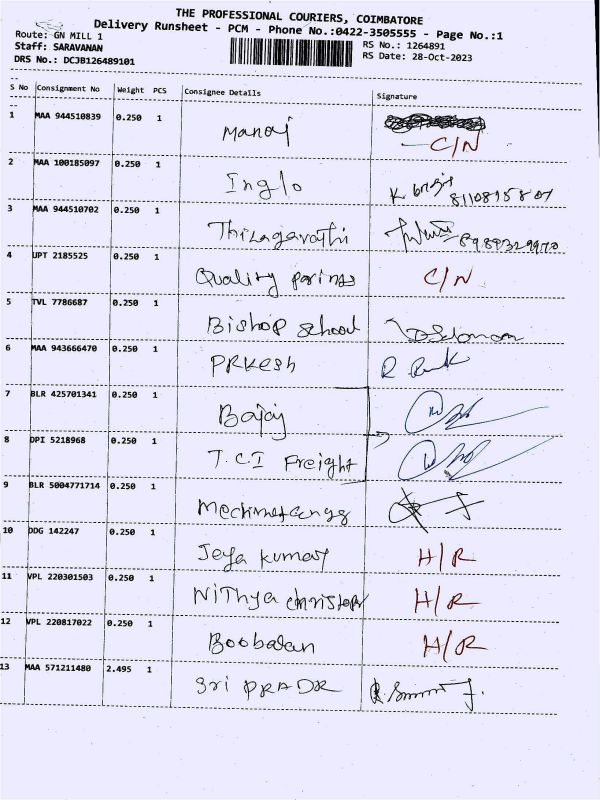 THE PROFESSIONAL COURIERS, COIMBATORE
Delivery Runsheet - PCM - Phone No.:0422-3505555 - Page No.:1
Route: GN MILL 1
RS No.: 1264891
Staff: SARAVANAN
RS Date: 28-Oct-2023
DRS No.: DCJB126489101
S No Consignment No Weight PCS Consignee Details Signature
1 MAA 944510839 0.250 1 Manoj C/N
2 MAA 100185097 0.250 1 Inglo
3 MAA 944510702 0.250 1 Thilagavathi 8989329970
4 UPT 2185525 0.250 1 Quality C/N
5 TVL 7786687 0.250 1 Bishop school
6 MAA 943666470 0.250 1 PRKesh
7 BLR 425701341 0.250 1 Bajaj
8 DPI 5218968 0.250 1 T.C.I Freight
9 BLR 5004771714 0.250 1
10 DDG 142247 0.250 1 Jeya kumar H/R
11 VPL 220301503 0.250 1 Nithya H/R
12 VPL 220817022 0.250 1 Boobalan H/R
13 MAA 571211480 2.495 1 Sri